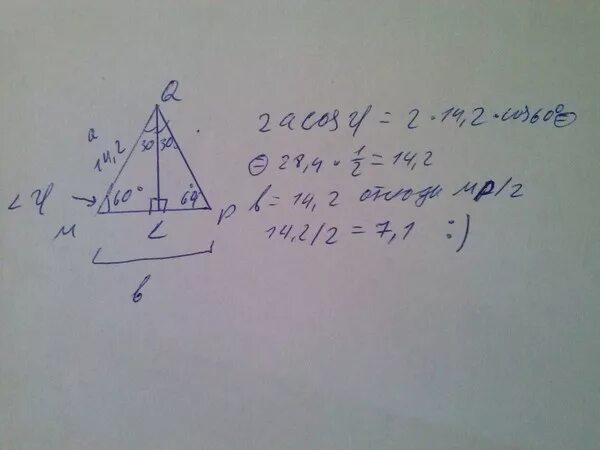 Q
a
14,2
30 30
∠ψ → 60° 60°
M L P
b
2a cos ψ = 2 · 14,2 · cos 60° ⊖
⊖ 28,4 · 1/2 = 14,2
b = 14,2 отсюда MP/2
14,2/2 = 7,1 :)